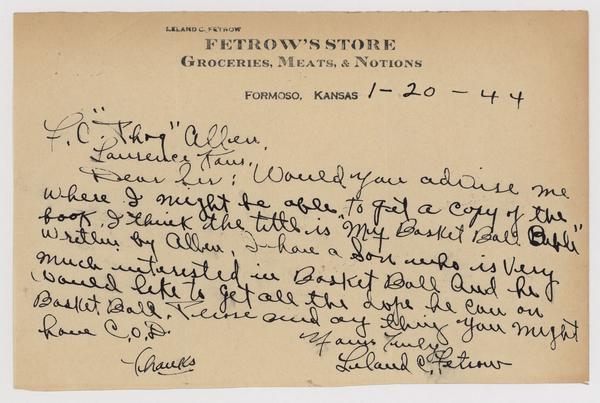 LELAND C. FETROW
FETROW'S STORE
GROCERIES, MEATS, & NOTIONS
FORMOSO, KANSAS 1-20-44
F.C. "Phog" Allen,
Lawrence Kans.,
Dear Sir: Would you advise me
where I might be able to get a copy of the
book, I think the title is "My Basket Ball Bible"
written by Allen, I have a son who is very
much interested in Basket Ball and he
would like to get all the dope he can on
Basket Ball. Please send any thing you might
have C.O.D.
Yours Truly
Thanks
Leland C. Fetrow